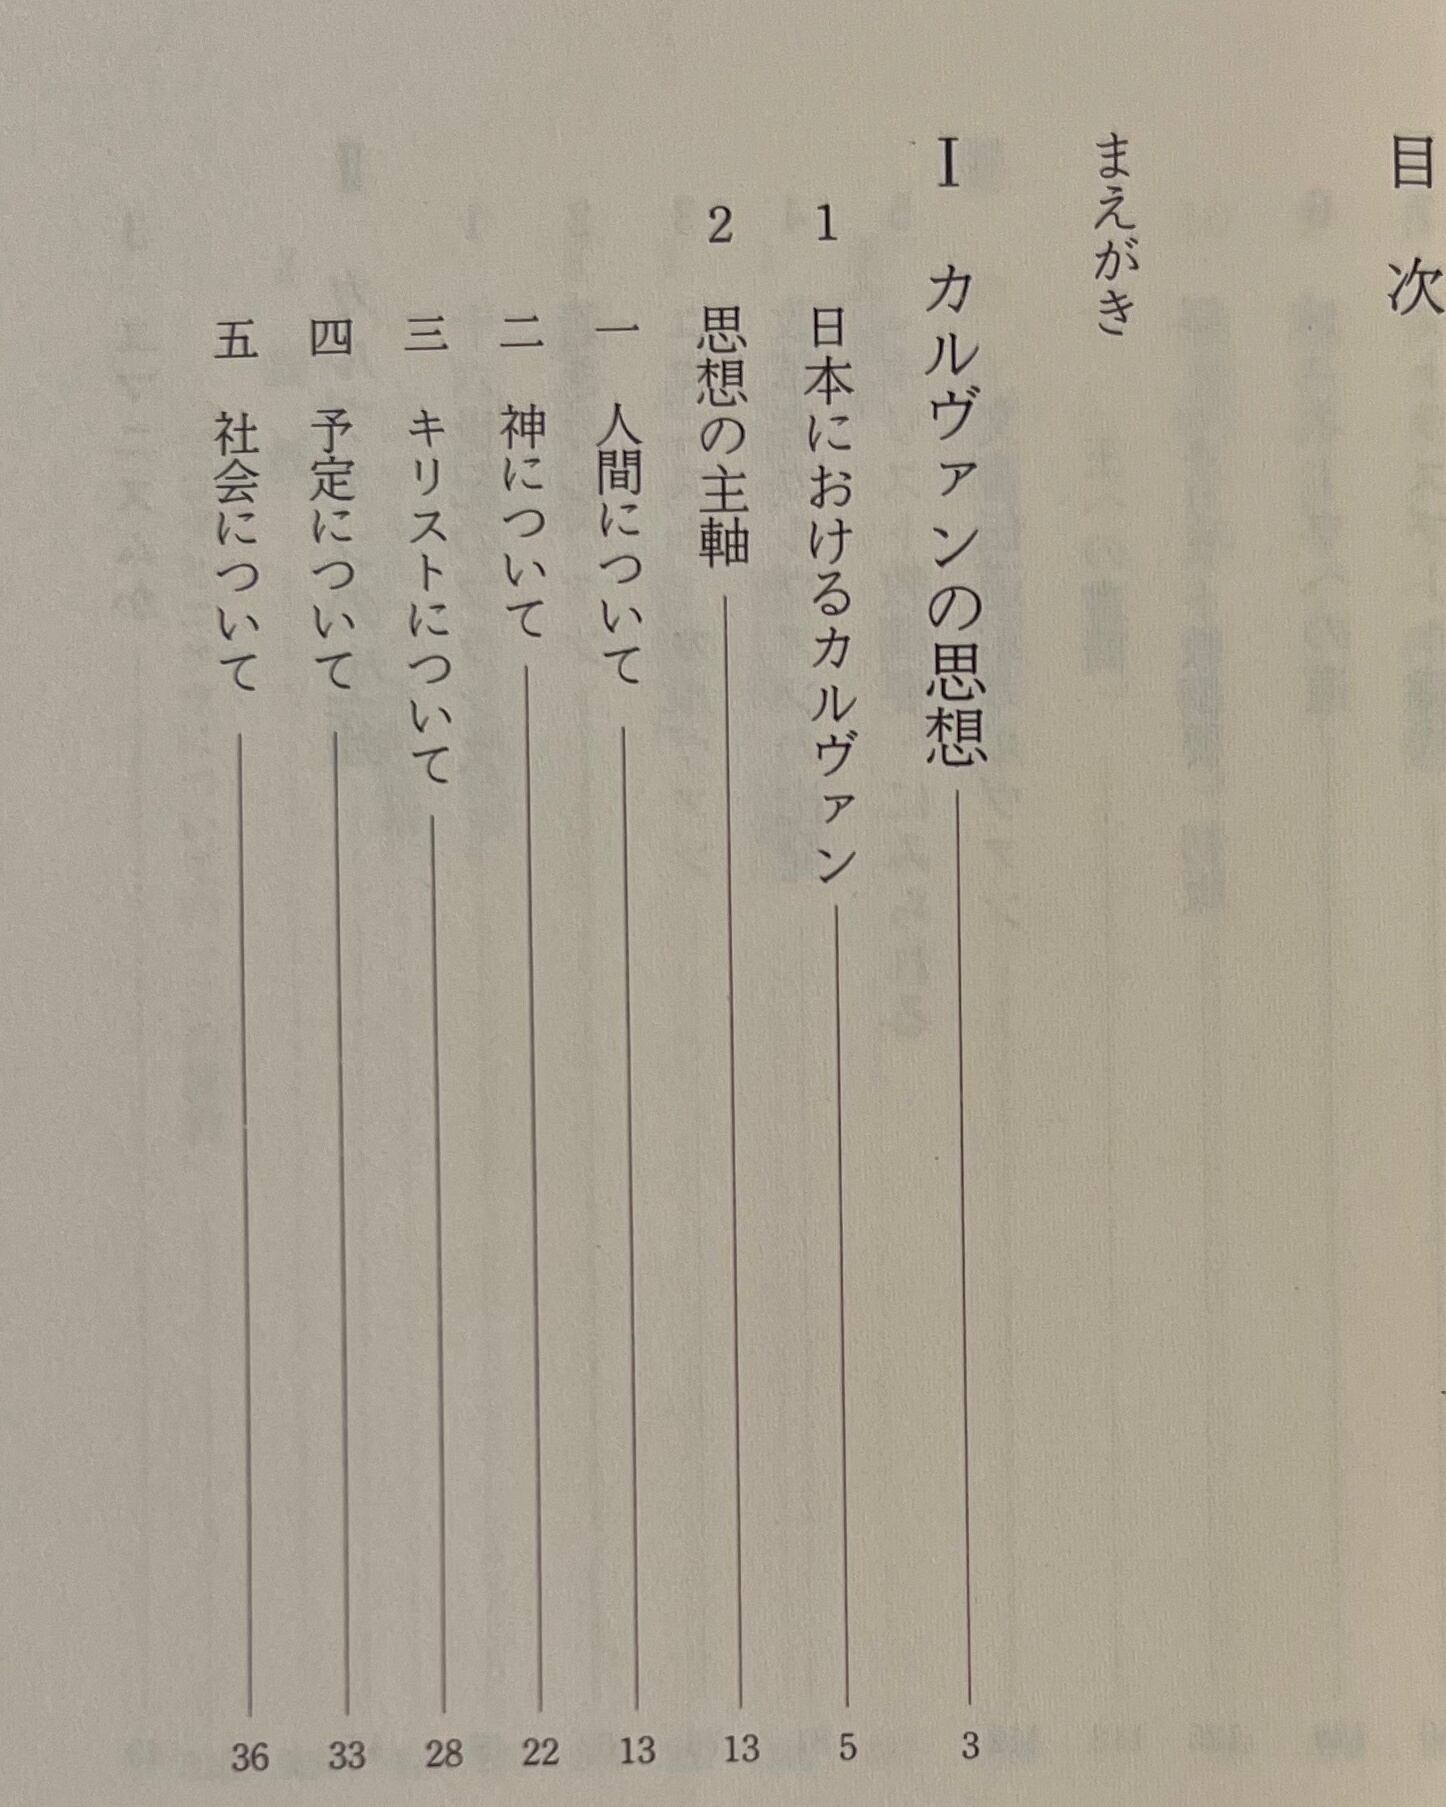 目次
まえがき
Ⅰ カルヴァンの思想 3
1 日本におけるカルヴァン 5
2 思想の主軸 13
一 人間について 13
二 神について 22
三 キリストについて 28
四 予定について 33
五 社会について 36